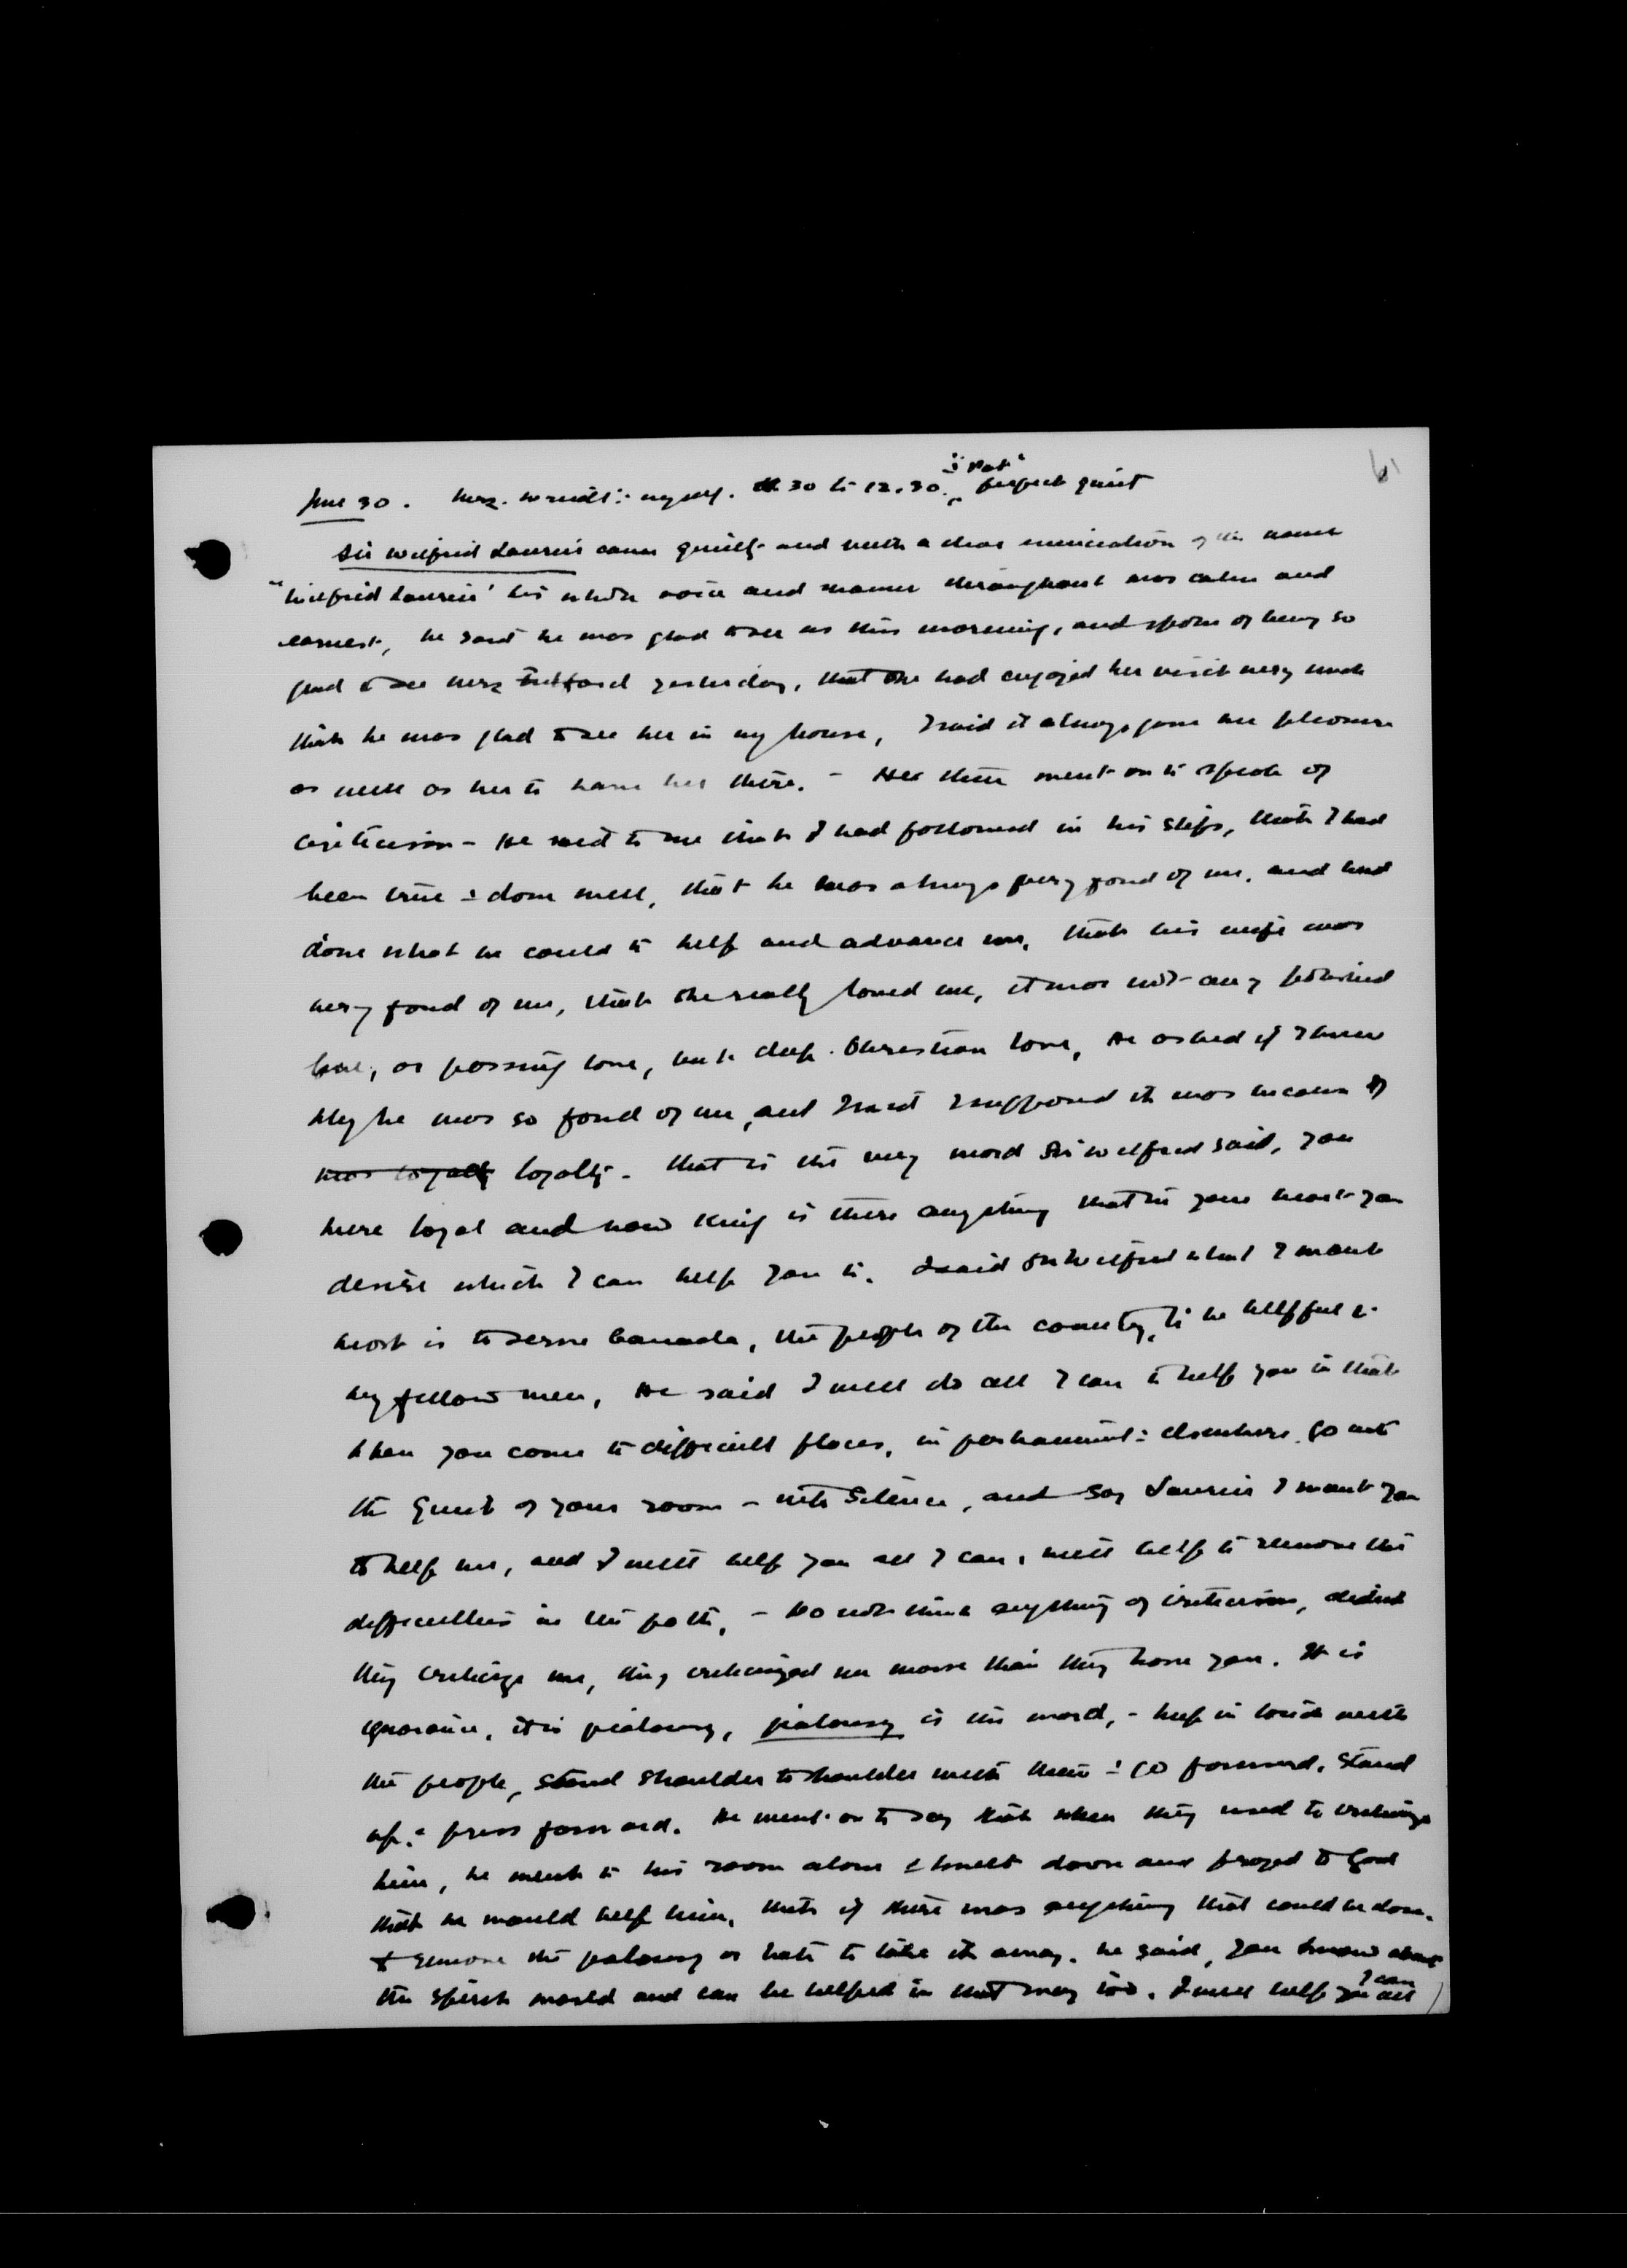 61
June 30. Mrs. Wriedt & myself. 11.30 to 12.30. & 'Pat' perfect quiet
Sir Wilfrid Laurier came quietly and with a clear enunciation of the name
"Wilfrid Laurier' his whole voice and manner throughout was calm and
earnest, he said he was glad to see us this morning, and spoke of being so
glad to see Mrs yesterday, that she had enjoyed her visit very much
that he was glad to see her in my house, I said it always gave me pleasure
as well as her to have her there. – He then went on to speak of
criticism – He said to me that I had followed in his steps, that I had
been true & done well, that he was always very fond of me, and had
done what he could to help and advance me, that his wife was
very fond of me, that she really loved me, it was not any
love, or passing love, but deep Christian love, He asked if I knew
why he was so fond of me, and I said I supposed it was because of
was loyalty loyalty – that is the very word Sir Wilfrid said, you
were loyal and now King is there anything that in your heart you
desire which I can help you to. I said Sir Wilfrid what I want
most is to serve Canada, the people of the country, to be helpful to
my fellow men, He said I will do all I can to help you in that
when you come to difficult places, in parliament & elsewhere go into
the quiet of your room – into silence, and say Laurier I want you
to help me, and I will help you all I can, will help to remove the
difficulties in the path, – Do not think anything of criticism, didnt
they criticize me, they criticized me worse than they have you. It is
ignorance, it is jealousy, jealousy is the word, – keep in touch with
the people, stand shoulder to shoulder with them & go forward. Stand
up & press forward. He went on to say that when they used to criticize
him, he went to his room alone & knelt down and prayed to God
that he would help him, that if there was anything that could be done
to remove the jealousy or hate to take it away. he said, you know about
the spirit world and can be helped in that way too. I will help you all I can